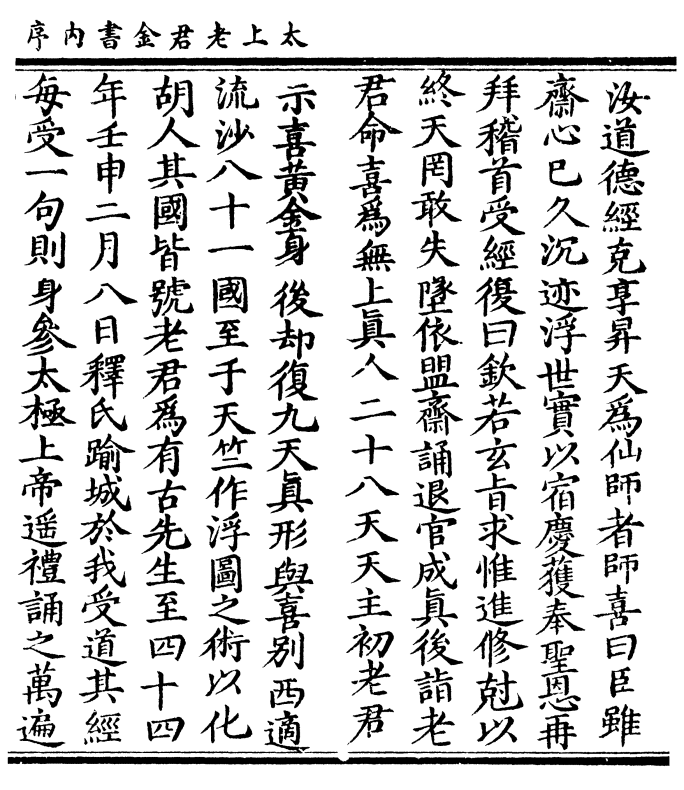 太上老君金書内序
汝道德經克享昇天爲仙師者師喜曰臣雖
齋心已久沉迹浮世實以宿慶獲奉聖恩再
拜稽首受經復曰欽若玄旨求惟進修尅以
終天罔敢失墜依盟齋誦退官成眞後詣老
君命喜爲無上眞人二十八天天主初老君
示喜黄金身後却復九天眞形與喜别西適
流沙八十一國至于天竺作浮圖之術以化
胡人其國皆號老君爲有古先生至四十四
年壬申二月八日釋氏踰城於我受道其經
每受一句則身參太極上帝遥禮誦之萬遍